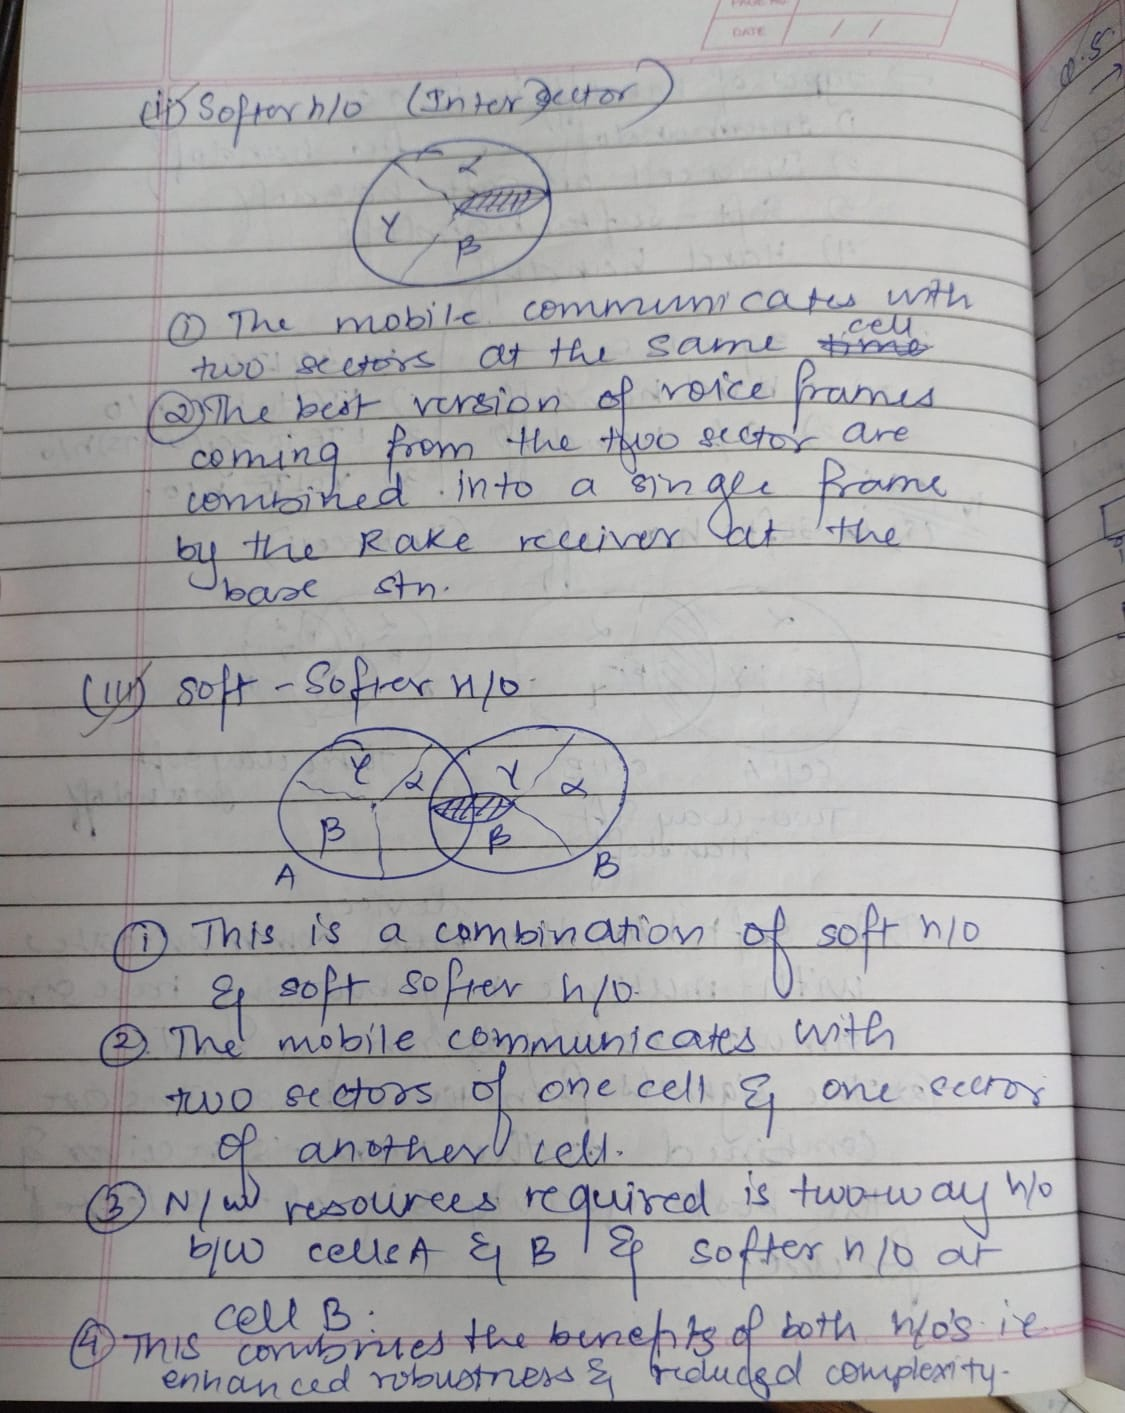 PAGE NO.
DATE / /
(ii) Softer h/o (Inter Sector)
α
γ
β
① The mobile communicates with
two sectors at the same time cell
② The best version of voice frames
coming from the two sector are
combined into a single frame
by the Rake receiver at the
base stn.
(iii) Soft - Softer h/o
γ α γ α
β β
A B
① This is a combination of soft h/o
& soft softer h/o.
② The mobile communicates with
two sectors of one cell & one sector
of another cell.
③ N/w resources required is two-way h/o
b/w cells A & B & softer h/o at
cell B.
④ This combines the benefits of both h/o's i.e
enhanced robustness & reduced complexity.